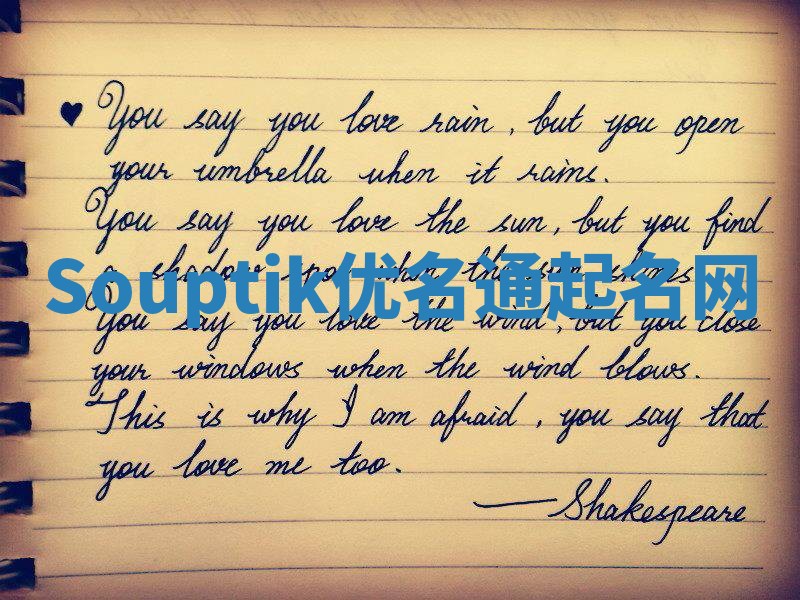 ♥ You say you love rain, but you open
your umbrella when it rains.
You say you love the sun, but you find
a shadow spot when the sun shines
Souptik优名通起名网
You say you love the wind, but you close
your windows when the wind blows.
This is why I am afraid, you say that
you love me too.
—Shakespeare